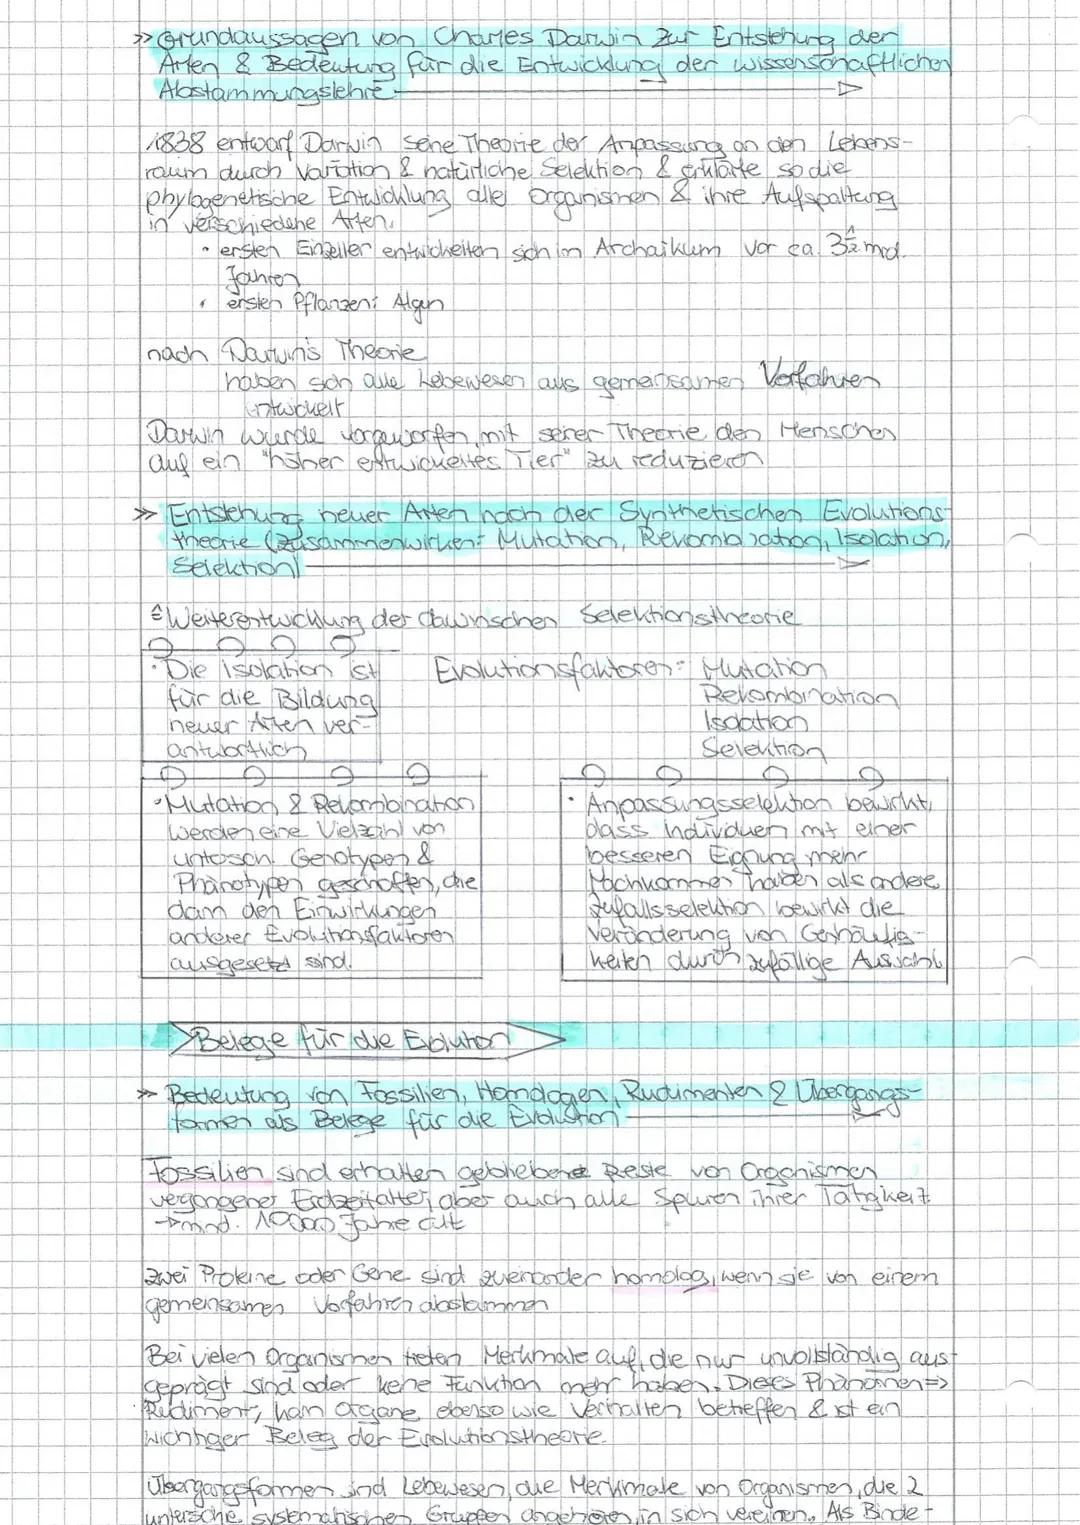 >> Grundaussagen von Charles Darwin zur Entstehung der
Arten & Bedeutung für die Entwicklung der wissenschaftlichen
Abstammungslehre
1838 entwarf Darwin seine Theorie der Anpassung an den Lebens-
raum durch Variation & natürliche Selektion & erklärte so die
phylogenetische Entwicklung aller Organismen & ihre Aufspaltung
in verschiedene Arten.
• ersten Einzeller entwickelten sich im Archaikum vor ca. 3½ mrd.
Jahren
• ersten Pflanzen: Algen
nach Darwin's Theorie
haben sich alle Lebewesen aus gemeinsamen Vorfahren
entwickelt
Darwin wurde vorgeworfen, mit seiner Theorie den Menschen
auf ein "höher entwickeltes Tier" zu reduzieren
>> Entstehung neuer Arten nach der Synthetischen Evolutions-
theorie (Zusammenwirken: Mutation, Rekombination, Isolation,
Selektion)
≙ Weiterentwicklung der dawinschen Selektionstheorie
• Die Isolation ist
für die Bildung
neuer Arten ver-
antwortlich
Evolutionsfaktoren: Mutation
Rekombination
Isolation
Selektion
• Mutation & Rekombination
werden eine Vielzahl von
untersch. Genotypen &
Phänotypen geschaffen, die
dann den Einwirkungen
anderer Evolutionsfaktoren
ausgesetzt sind.
• Anpassungsselektion bewirkt,
dass Individuen mit einer
besseren Eignung mehr
Nachkommen haben als andere
Zufallsselektion bewirkt die
Veränderung von Genhäufig-
keiten durch zufällige Auswahl
Belege für die Evolution
>> Bedeutung von Fossilien, Homologen, Rudimenten & Übergangs-
formen als Belege für die Evolution
Fossilien sind erhalten gebliebene Reste von Organismen
vergangener Erdzeitalter, aber auch alle Spuren ihrer Tätigkeit
→ mind. 10000 Jahre alt
Zwei Proteine oder Gene sind zueinander homolog, wenn sie von einem
gemeinsamen Vorfahren abstammen
Bei vielen Organismen treten Merkmale auf, die nur unvollständig aus-
geprägt sind oder keine Funktion mehr haben. Dieses Phänomen =>
Rudiment, kann Organe ebenso wie Verhalten betreffen & ist ein
wichtiger Beleg der Evolutionstheorie.
Übergangsformen sind Lebewesen, die Merkmale von Organismen, die 2
unterschie. systematischen Gruppen angehören, in sich vereinen. Als Binde-